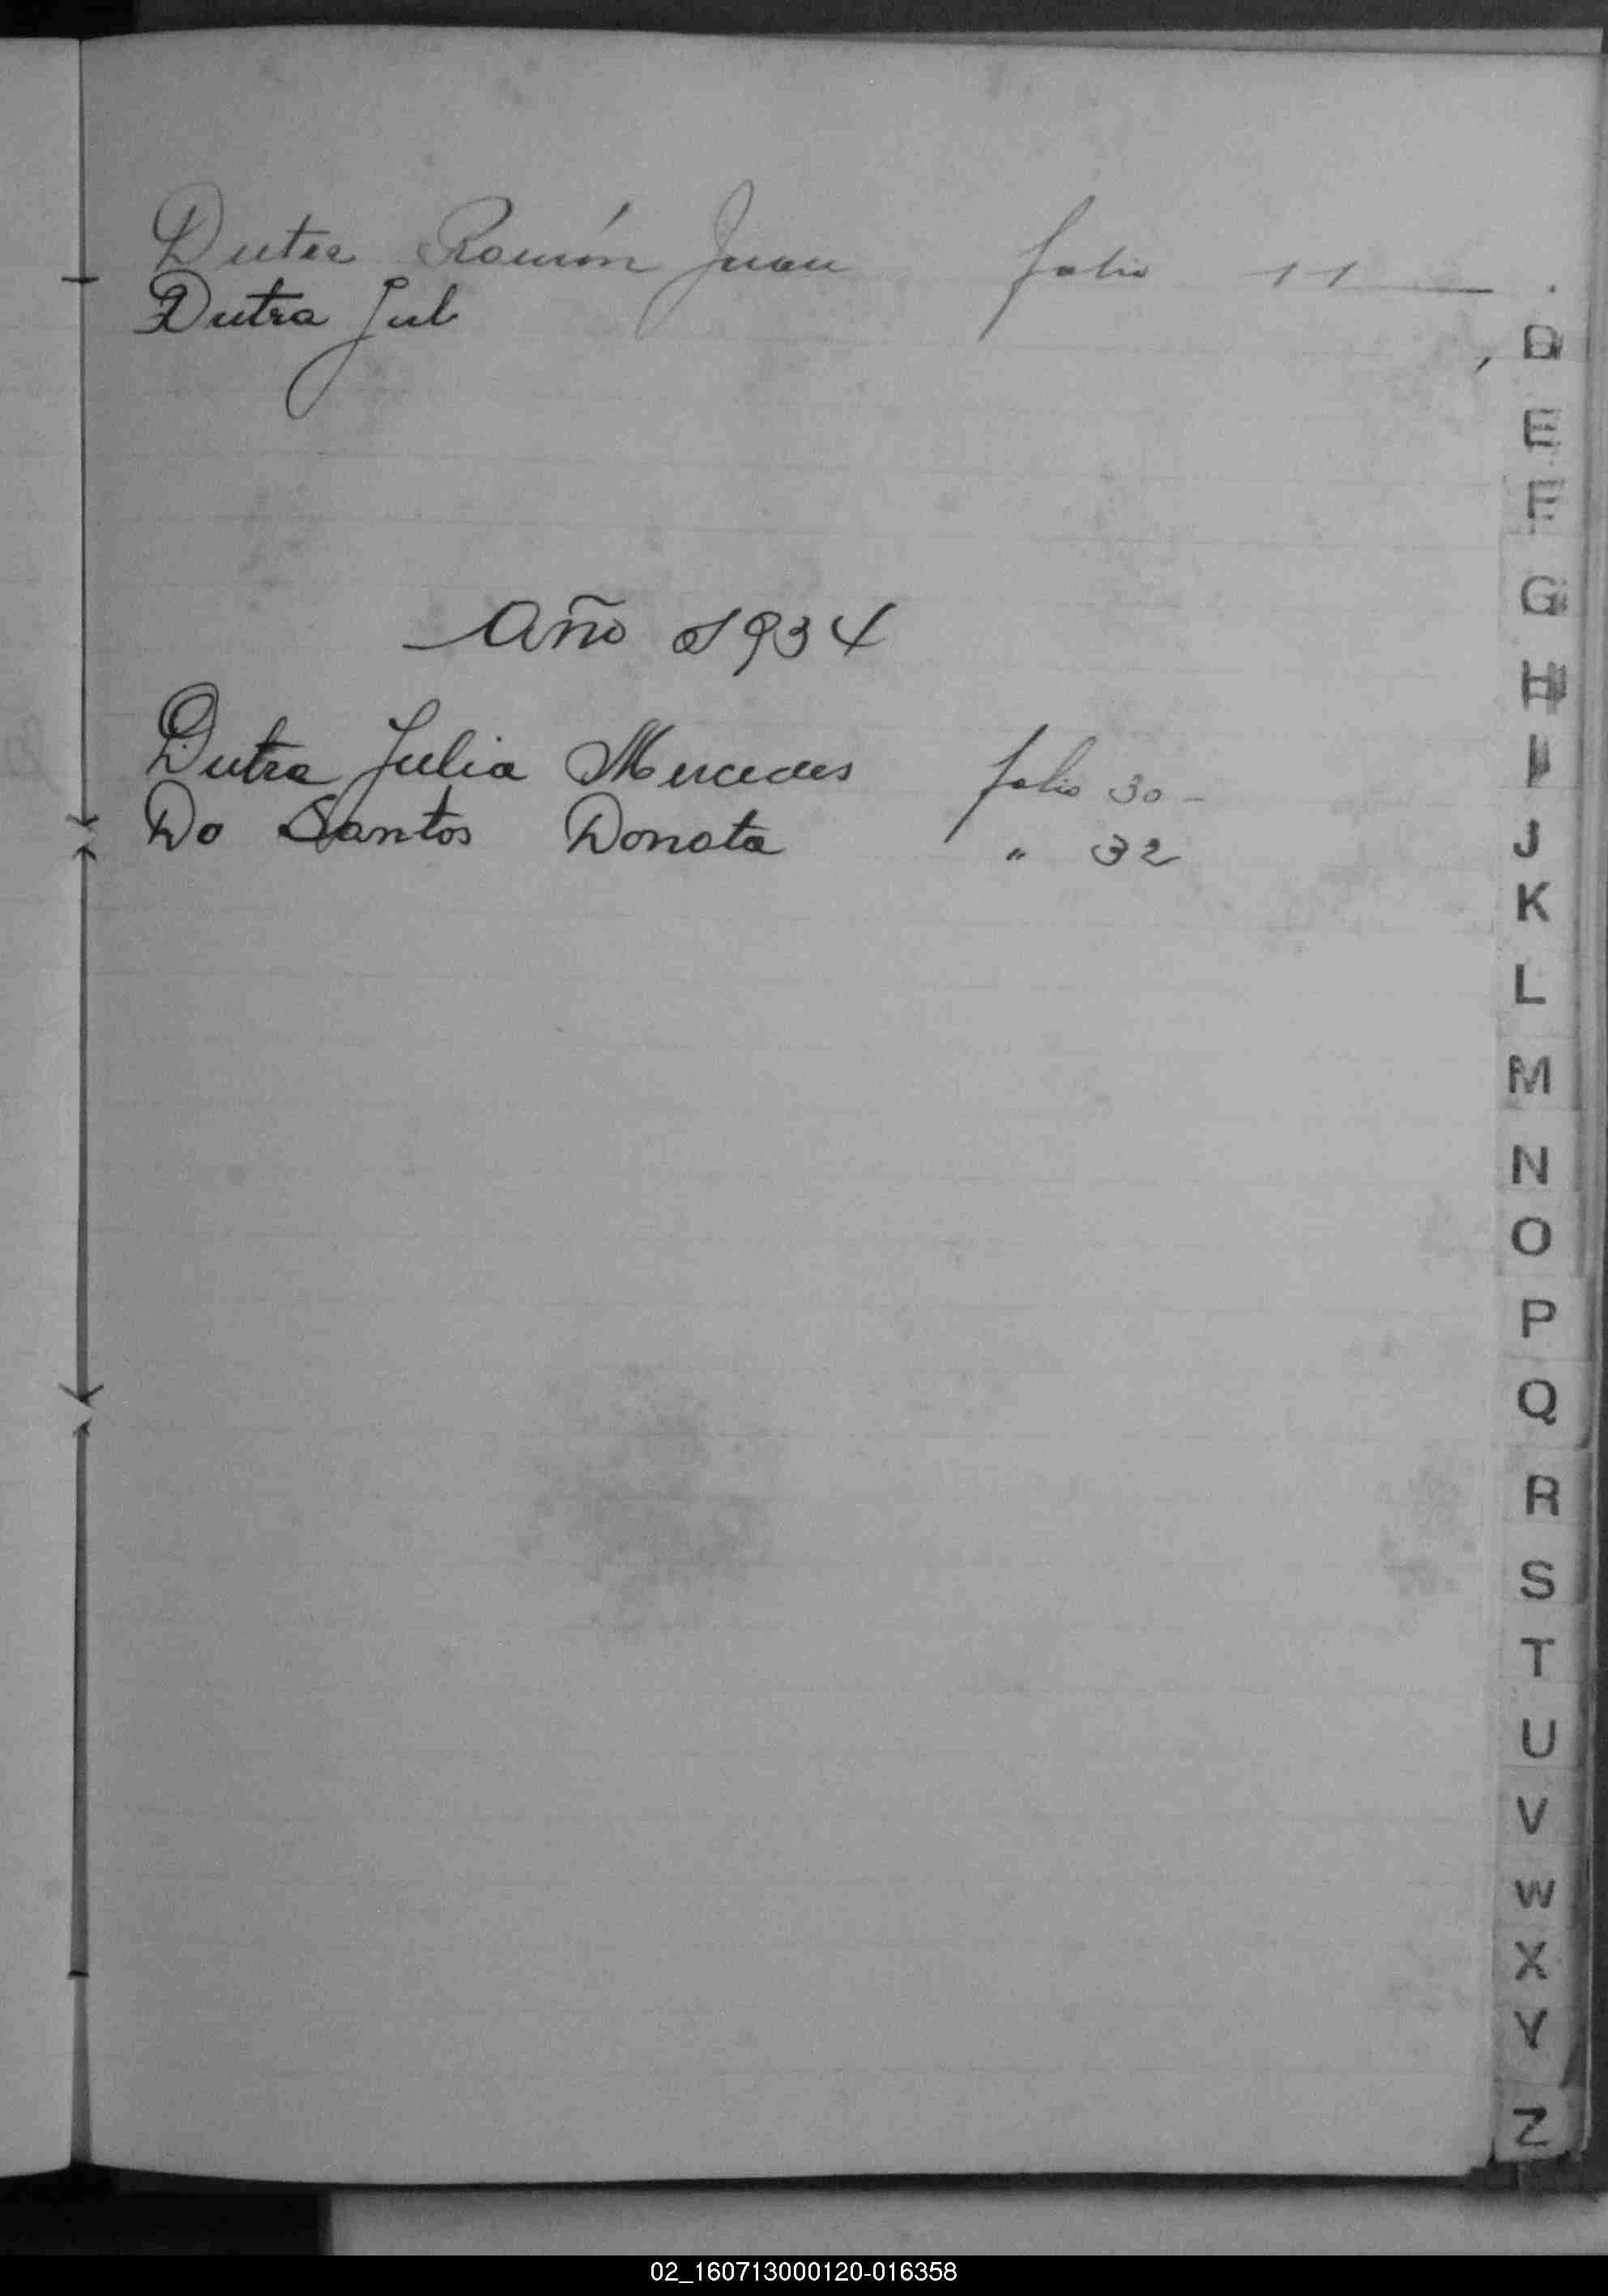 Dutra Ramón Juan folio 11
Dutra Jul
Año 1934
Dutra Julia Mercedes folio 30 -
Do Santos Donata " 32
D
E
F
G
H
I
J
K
L
M
N
O
P
Q
R
S
T
U
V
W
X
Y
Z
02_160713000120-016358